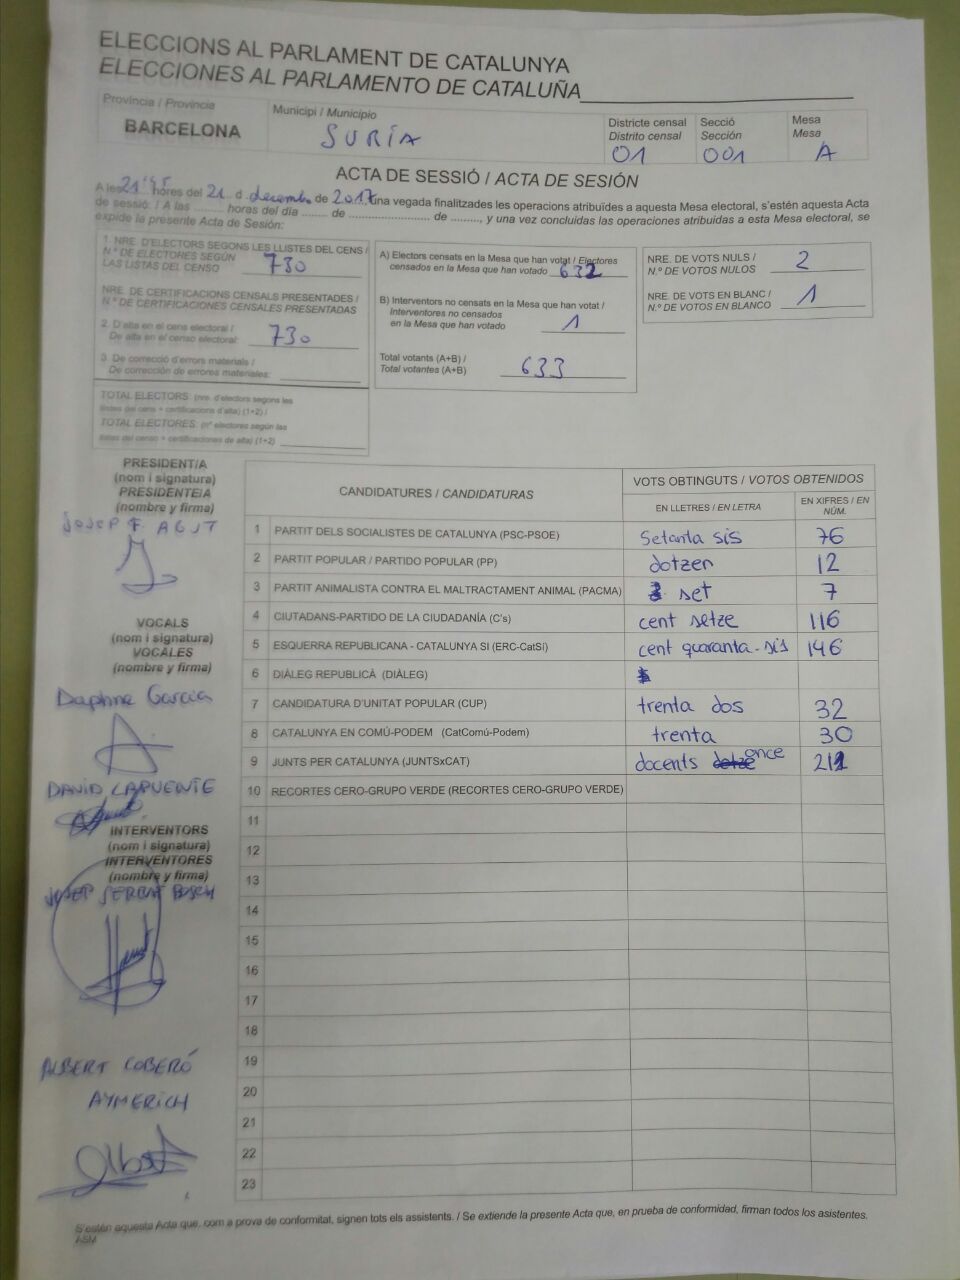 ELECCIONS AL PARLAMENT DE CATALUNYA
ELECCIONES AL PARLAMENTO DE CATALUÑA
Província / Provincia
BARCELONA
Municipi / Municipio
SURIA
Districte censal
Distrito censal
01
Secció
Sección
001
Mesa
Mesa
A
ACTA DE SESSIÓ / ACTA DE SESIÓN
A les 21'45 hores del 21 d desembre de 2017, una vegada finalitzades les operacions atribuïdes a aquesta Mesa electoral, s'estén aquesta Acta
de sessió: / A las ......... horas del día ........ de ......................... de .........., y una vez concluidas las operaciones atribuidas a esta Mesa electoral, se
expide la presente Acta de Sesión:
1. NRE. D'ELECTORS SEGONS LES LLISTES DEL CENS /
N.º DE ELECTORES SEGÚN
LAS LISTAS DEL CENSO 730
NRE. DE CERTIFICACIONS CENSALS PRESENTADES /
N.º DE CERTIFICACIONES CENSALES PRESENTADAS
2. D'alta en el cens electoral /
De alta en el censo electoral: 730
3. De correcció d'errors materials /
De corrección de errores materiales:
TOTAL ELECTORS: (nre. d'electors segons les
llistes del cens + certificacions d'alta) (1+2) /
TOTAL ELECTORES: (nº electores según las
listas del censo + certificaciones de alta) (1+2)
A) Electors censats en la Mesa que han votat / Electores
censados en la Mesa que han votado 632
B) Interventors no censats en la Mesa que han votat /
Interventores no censados
en la Mesa que han votado 1
Total votants (A+B) /
Total votantes (A+B) 633
NRE. DE VOTS NULS /
N.º DE VOTOS NULOS 2
NRE. DE VOTS EN BLANC /
N.º DE VOTOS EN BLANCO 1
PRESIDENT/A
(nom i signatura)
PRESIDENTE/A
(nombre y firma)
JOSEP F. AGUT
VOCALS
(nom i signatura)
VOCALES
(nombre y firma)
Daphne Garcia
DAVID LAPUENTE
INTERVENTORS
(nom i signatura)
INTERVENTORES
(nombre y firma)
JOSEP SERRAT BOSCH
ALBERT COBERÓ
AYMERICH
CANDIDATURES / CANDIDATURAS
VOTS OBTINGUTS / VOTOS OBTENIDOS
EN LLETRES / EN LETRA
EN XIFRES / EN
NÚM.
1 PARTIT DELS SOCIALISTES DE CATALUNYA (PSC-PSOE) Setanta sis 76
2 PARTIT POPULAR / PARTIDO POPULAR (PP) dotzen 12
3 PARTIT ANIMALISTA CONTRA EL MALTRACTAMENT ANIMAL (PACMA) set 7
4 CIUTADANS-PARTIDO DE LA CIUDADANÍA (C's) cent setze 116
5 ESQUERRA REPUBLICANA - CATALUNYA SI (ERC-CatSí) cent quaranta-sis 146
6 DIÀLEG REPUBLICÀ (DIÀLEG)
7 CANDIDATURA D'UNITAT POPULAR (CUP) trenta dos 32
8 CATALUNYA EN COMÚ-PODEM (CatComú-Podem) trenta 30
9 JUNTS PER CATALUNYA (JUNTSxCAT) docents dotze once 211
10 RECORTES CERO-GRUPO VERDE (RECORTES CERO-GRUPO VERDE)
11
12
13
14
15
16
17
18
19
20
21
22
23
S'estén aquesta Acta que, com a prova de conformitat, signen tots els assistents. / Se extiende la presente Acta que, en prueba de conformidad, firman todos los asistentes.